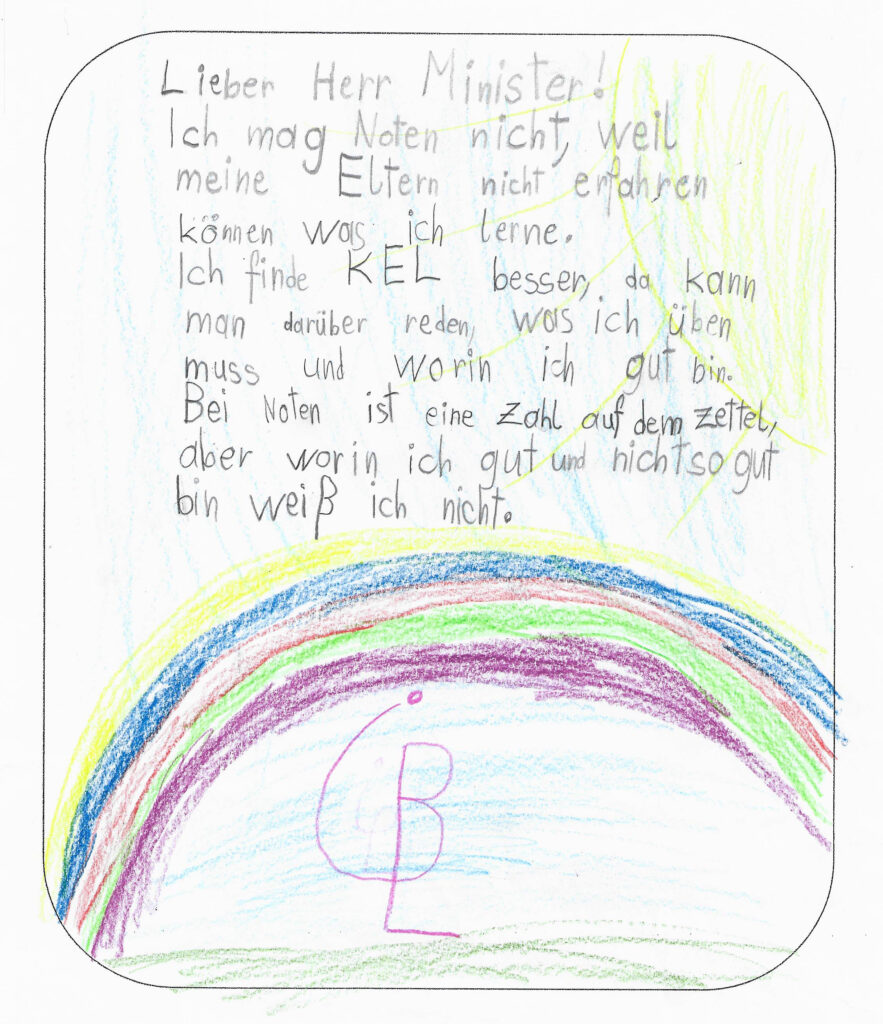 Lieber Herr Minister!
Ich mag Noten nicht, weil
meine Eltern nicht erfahren
können was ich lerne.
Ich finde KEL besser, da kann
man darüber reden, was ich üben
muss und worin ich gut bin.
Bei Noten ist eine Zahl auf dem Zettel,
aber worin ich gut und nicht so gut
bin weiß ich nicht.